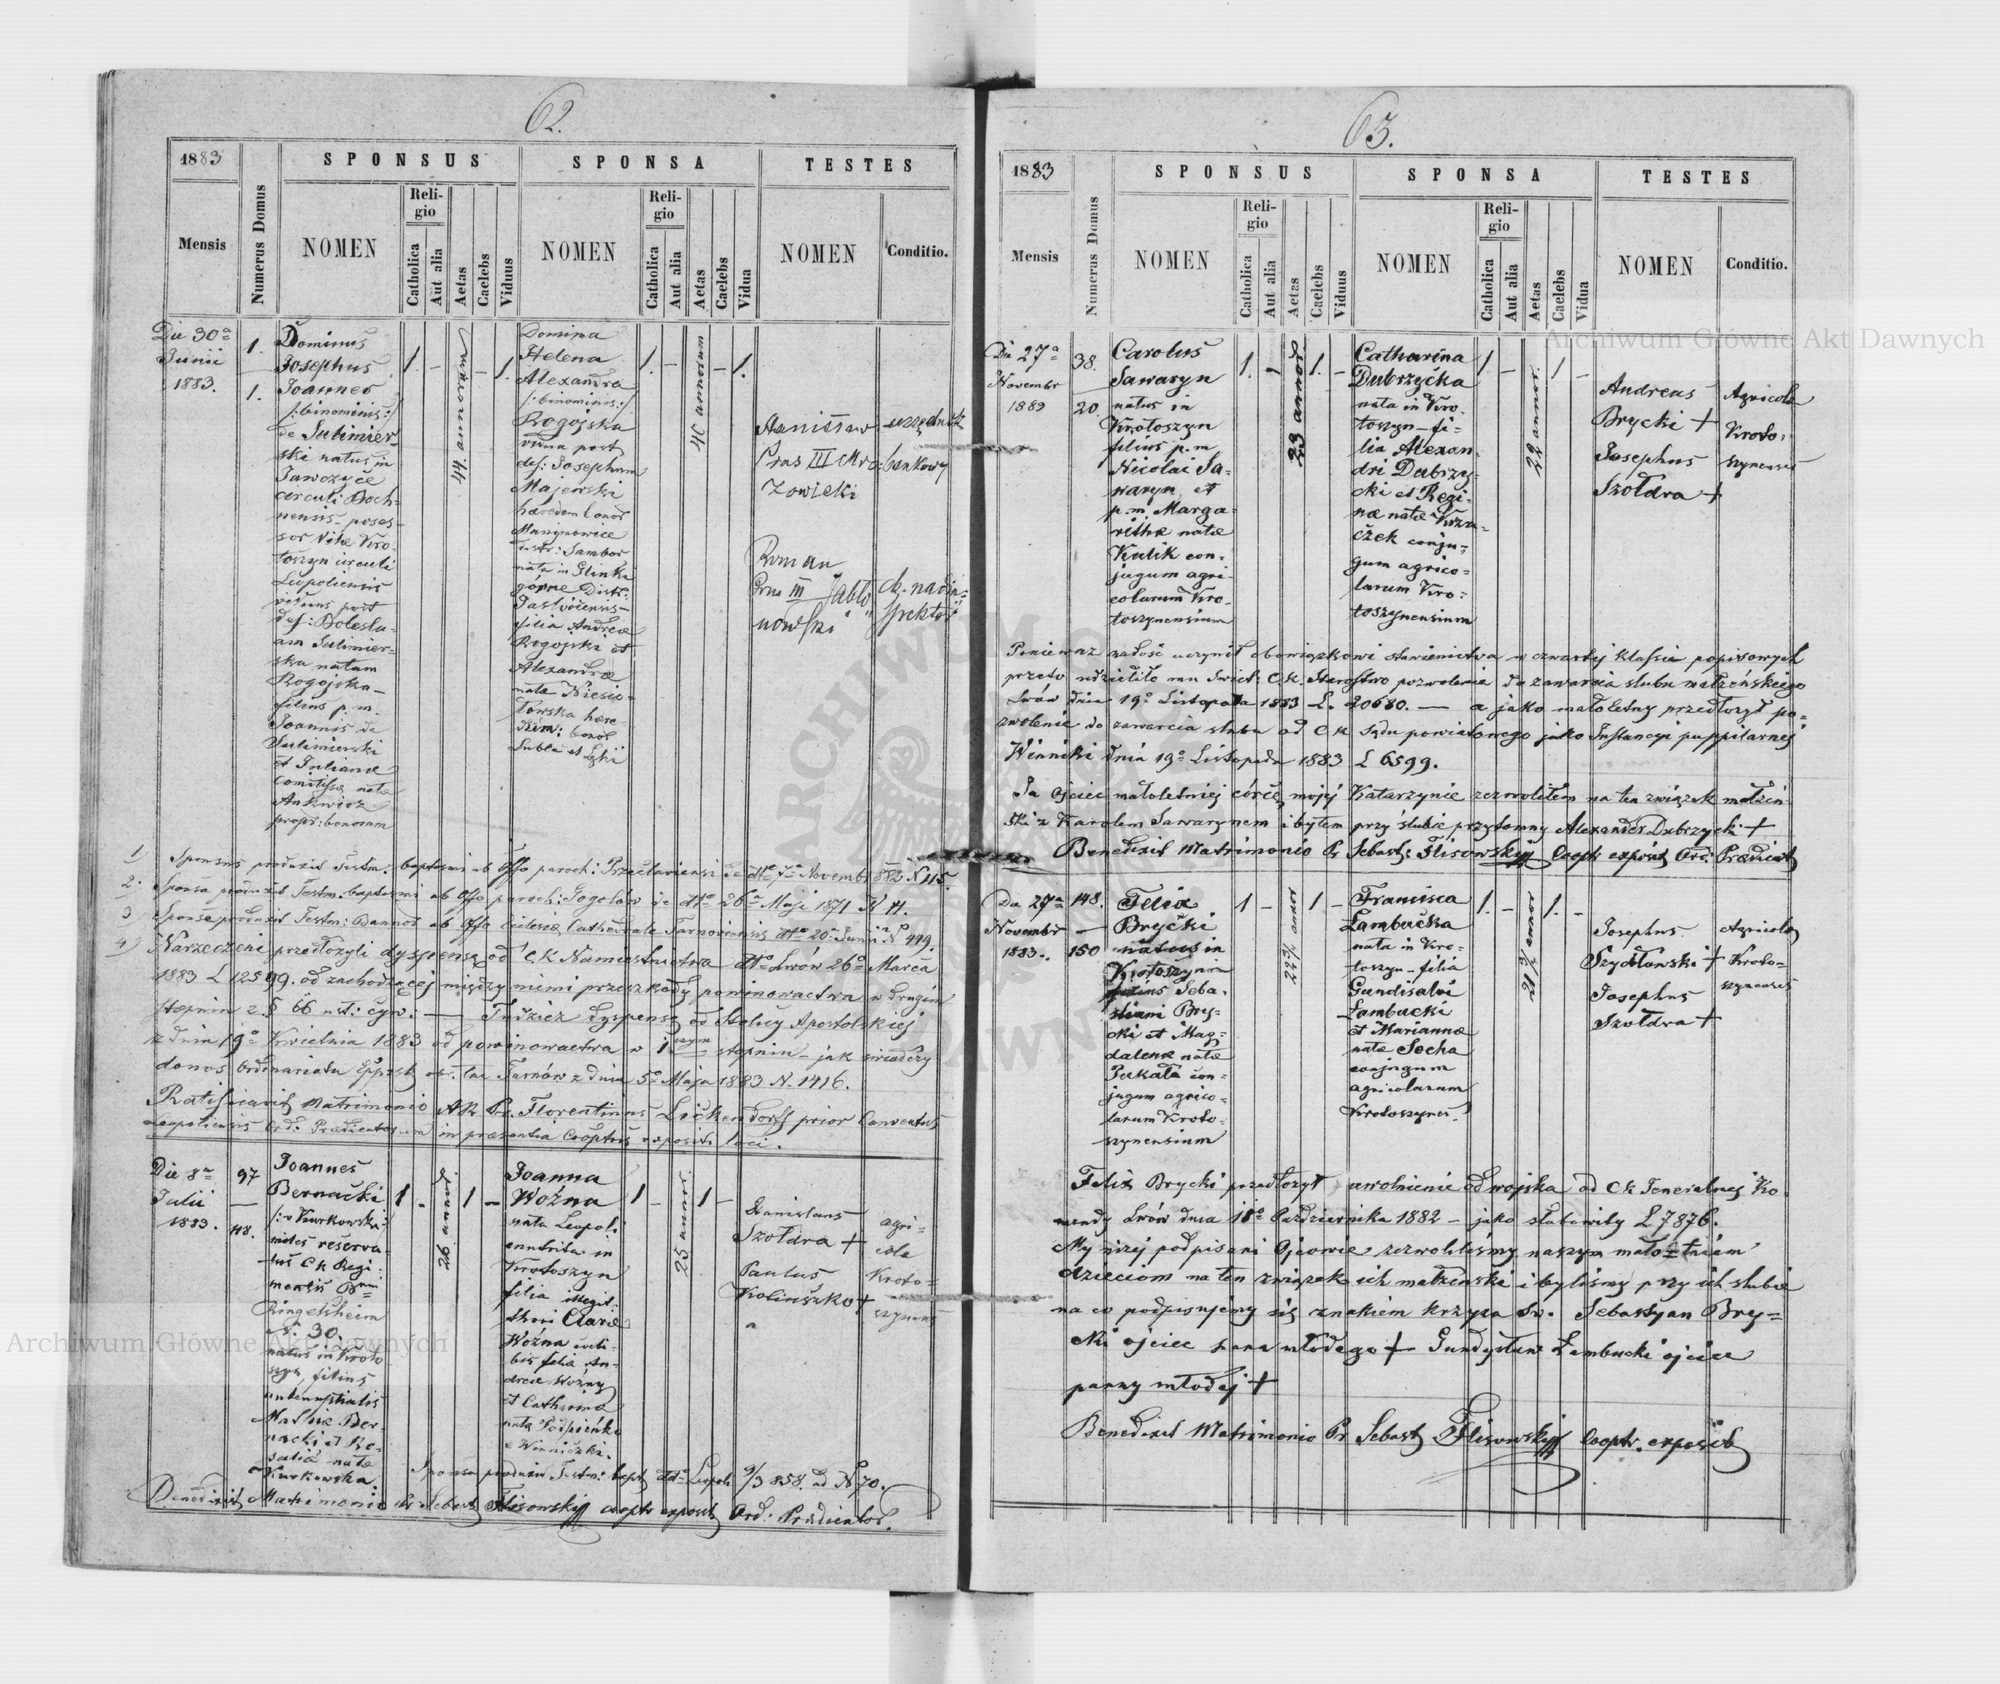 62.
1883
SPONSUS
SPONSA
TESTES
Mensis
Numerus Domus
NOMEN
Religio
Catholica
Aut alia
Aetas
Caelebs
Viduus
NOMEN
Religio
Catholica
Aut alia
Aetas
Caelebs
Vidua
NOMEN
Conditio.
Die 30a
Junii
1883.
1.
1.
Dominus
Josephus
Joannes
/:binominis:/
de Sulimier-
ski natus in
circuli Boch-
nensis poses-
sor Kro-
toszyn circuli
Leopoliensis
viduus post
def: Bolesla-
am Sulimier-
ska natam
Rogojska
filius p.m.
Joannis de
Sulimierski
et Julianae
Comitissa nata
Ankwicz
propr: bonorum
1.
44 annorum
1.
Domina
Helena
Alexandra
/:binominis:/
Rogojska
vidua post
def: Josephum
Majewski
nata in Glinki
górne Distr:
filia Andreae
Rogojski et
Alexandrae
natae Niesio-
łowska
1.
40 annorum
1.
Stanisław
Prus III Mro-
zowicki
urzędnik
bankowy
Roman
Prus III Jabło-
nowski
1) Sponsus produxit Testm: baptismi ab Offo paroch: Przecłaviensi de dto 7a Novembr 883 N 115.
2. Sponsa produxit Testm. baptismi ab Offo paroch: Gogołów de dto 26a Maji 1871 N 4.
4) Narzeczeni przedłożyli dyspensę od C.K Namiestnictwa dto Lwów 26o Marca
1883 L 12599. od zachodzącej między niemi przeszkody powinowactwa w drugim
stopniu z § 66 ust: cyw: — Tudzież dyspensę od Stolicy Apostolskiej
z dnia 19o Kwietnia 1883 od powinowactwa w 1szym stopniu — jak świadczy
donos Ordinariatu Tarnów z dnia 5o Maja 1883 N. 1416.
Ratificavit Matrimonio AR Pr. Florentinus prior Conventus
Leopoliensis Ord: Praedicatorum in praesentia Cooptris expositi loci.
Die 8a
Julii
1883.
97
48.
Joannes
Bernacki
/:v Kurkowski:/
miles reserva-
tus CK Regi-
mentis
Ringelsheim
N. 30.
natus in Kroto
szyn, filius
antenuptialis
Mathiae Ber-
nacki et Ro-
salia nata
Kurkowska
1
26 annor
1
Joanna
Woźna
nata Leopol:
enutrita in
Krotoszyn
filia illegit:
thori Clarae
Woźna coeli-
bis filiae An-
dreae Woźny
et Catharinae
natae
e Winniczki.
1
25 annor:
1
Stanislaus
Szołdra +
Paulus
agri-
cola
Kroto-
Sponsa produxit Testm: bapt dto Leopoli 9/3 858. ad N 70.
Benedixit Matrimonio Pr Sebast Flisowski cooptr exposit Ord. Praedicator.
63.
1883
SPONSUS
SPONSA
TESTES
Mensis
Numerus Domus
NOMEN
Religio
Catholica
Aut alia
Aetas
Caelebs
Viduus
NOMEN
Religio
Catholica
Aut alia
Aetas
Caelebs
Vidua
NOMEN
Conditio.
Die 27a
Novembr
1883
38.
20.
Carolus
Sawaryn
natus in
Krotoszyn
filius p.m
Nicolai Sa-
waryn et
p.m. Marga-
rithae natae
Kulik con-
jugum agri-
colarum Kro-
toszynensium
1.
23 annor
1.
Catharina
Dubrzycka
nata in Kro-
toszyn - fi-
lia Alexan-
dri Dubrzy-
cki et Regi-
nae natae Krza-
czek conju-
gum agrico-
larum Kro-
toszynensium
1
22 annor.
1
Andreas
Brycki +
Josephus
Szołdra +
Agricola
Kroto-
szynensis
Ponieważ zadość uczynił obowiązkowi stawienictwa w czwartej klassie popisowych
przeto udzieliło mu Świet: C.K. Starostwo pozwolenie do zawarcia ślubu małżeńskiego
Lwów dnia 19o Listopada 1883 L. 20680. — a jako małoletny przedłożył po-
zwolenie do zawarcia ślubu od CK Sądu powiatowego jako Instancyi puppilarnej
Winniki dnia 19o Listopada 1883 L 6599.
Ja Ojciec małoletniej córce mojej Katarzynie zezwoliłem na ten związek małżeń-
ski z Karolem Sawarynem i byłem przy ślubie przytomny Alexander Dubrzycki +
Benedixit Matrimonio Pr Sebast: Flisowski Cooptr exposit Ord: Praedicat
Die 27a
Novembr
1883.
148.
150
Felix
Brycki
natus in
Krotoszyn
filius Seba-
stiani Bry-
cki et Mag-
dalenae natae
Pukała con-
jugum agrico-
larum Kroto-
szynensium
1
22 3/4 annor
1
Francisca
Łambucka
nata in Kro-
toszyn - filia
Gundisalvi
Łambucki
et Mariannae
natae Socha
conjugum
agricolarum
Krotoszynen.
1.
1.
Josephus
Szydłowski +
Josephus
Szołdra +
Agricola
Kroto-
szynensis
Felix Brycki przedłożył uwolnienie od wojska od CK Generalnej Ko-
mendy Lwów dnia 18o Października 1882 — jako słabowity L 7876.
My niżej podpisani Ojcowie zezwoliliśmy naszym małoletnim
dzieciom na ten związek ich małżeński i byliśmy przy ich ślubie
na co podpisujemy się znakiem krzyża św. Sebastyan Bry-
cki ojciec pana młodego + Gundysław Łambucki ojciec
panny młodej +
Benedixit Matrimonio Pr Sebast Flisowski Cooptr. exposit
Archiwum Główne Akt Dawnych
Archiwum Główne Akt Dawnych